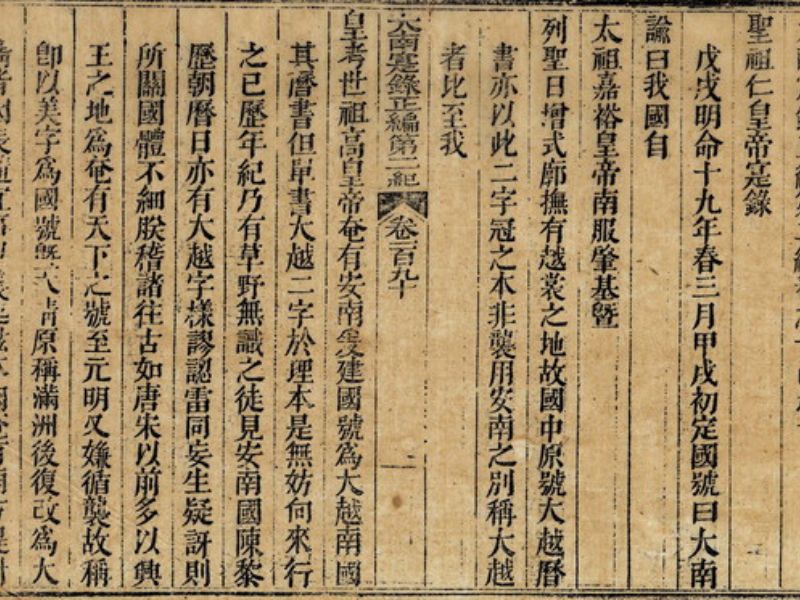 聖祖仁皇帝寔錄
戊戌明命十九年春三月甲戌初定國號曰大南
諭曰我國自
太祖嘉裕皇帝南服肇基曁
列聖日增式廓撫有越裳之地故國中原號大越曆
書亦以此二字冠之本非襲用安南之別稱大越
者比至我
大南寔錄正編第二紀 卷一百九十 一
皇考世祖高皇帝奄有安南爰建國號爲大越南國
其曆書但單書大越二字於理本是無妨向來行
之已歷年紀乃有草野無識之徒見安南國陳黎
歷朝曆日亦有大越字樣謬認雷同妄生疑訝則
所關國體不細朕稽諸往古如唐宋以前多以興
王之地爲奄有天下之號至元明又嫌循襲故稱
卽以美字爲國號曁大淸原稱滿洲後復改爲大